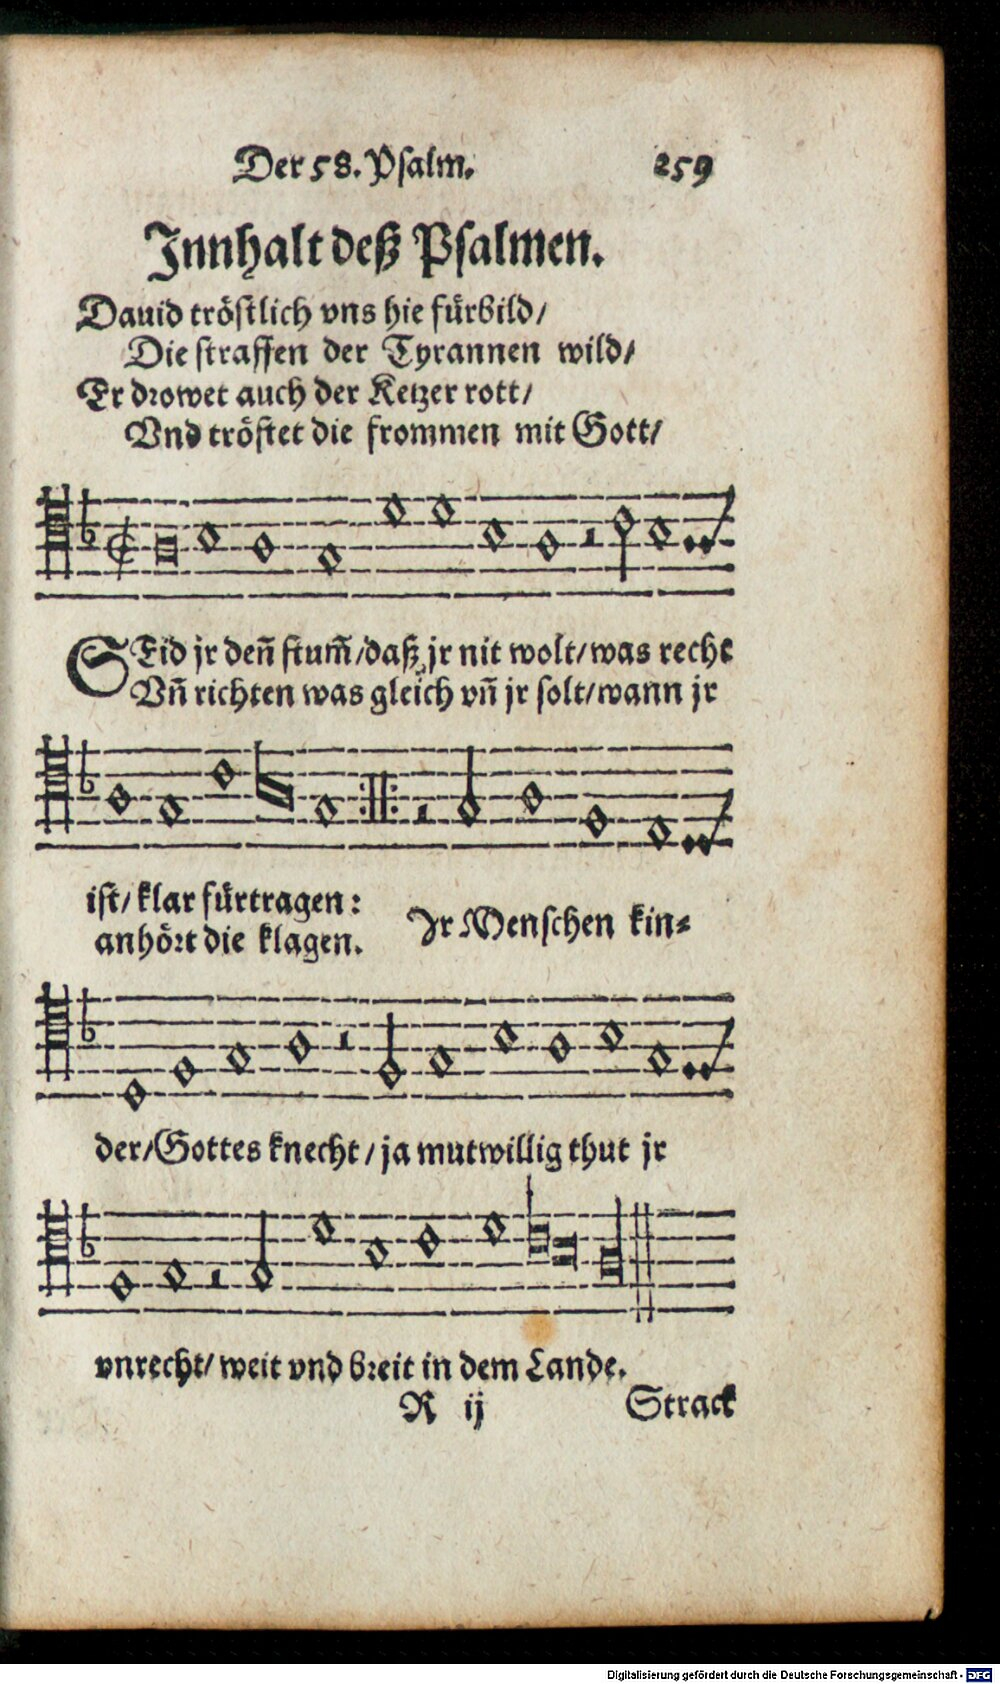 Der 58. Psalm. 259
Innhalt deß Psalmen.
Dauid tröstlich vns hie fürbild/
Die straffen der Tyrannen wild/
Er drowet auch der Ketzer rott/
Vnd tröstet die frommen mit Gott/
SEid jr deñ stum̃/daß jr nit wolt/was recht
Vñ richten was gleich vñ jr solt/wann jr
ist/klar fürtragen:
anhört die klagen.
Jr Menschen kin⸗
der/Gottes knecht/ja mutwillig thut jr
vnrecht/weit vnd breit in dem Lande.
R ij Strack
Digitalisierung gefördert durch die Deutsche Forschungsgemeinschaft - DFG